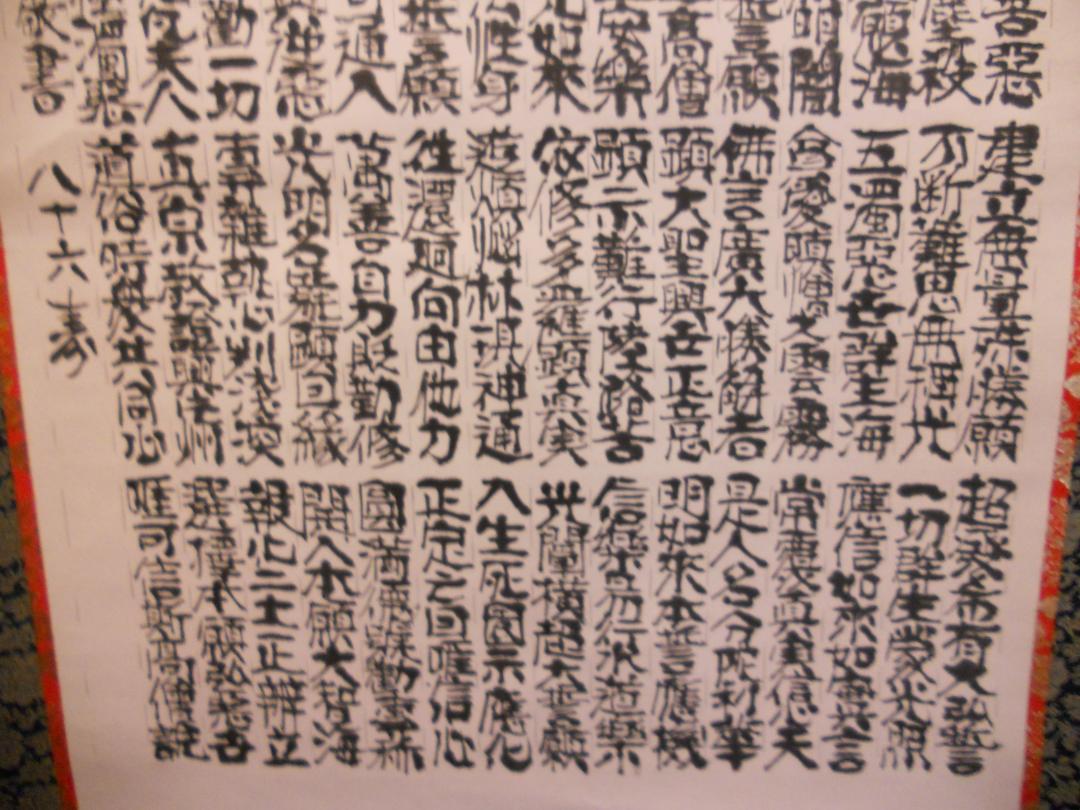 善惡 建立無量殊勝願 超發希有大弘誓
塵刹 不斷難思無稱光 一切群生蒙光照
願海 五濁惡世群生海 應信如來如實言
明闇 貪愛瞋憎之雲霧 常覆眞實信心天
誓願 佛言廣大勝解者 是人名分陀利華
高僧 顯大聖興世正意 明如來本誓應機
安樂 顯示難行陸路苦 信樂易行水道樂
如來 依修多羅顯真実 光闡橫超大誓願
性身 遊煩惱林現神通 入生死園示應化
誓願 往還廻向由他力 正定之因唯信心
可通入 萬善自力貶勤修 圓滿德號勸專稱
造惡 光明名號顯因縁 開入本願大智海
勸一切 專雜執心判淺深 報化二土正辨立
凡夫人 真宗教證興片州 選擇本願弘惡世
濁惡 道俗時衆共同心 唯可信斯高僧說
敬書 八十六壽